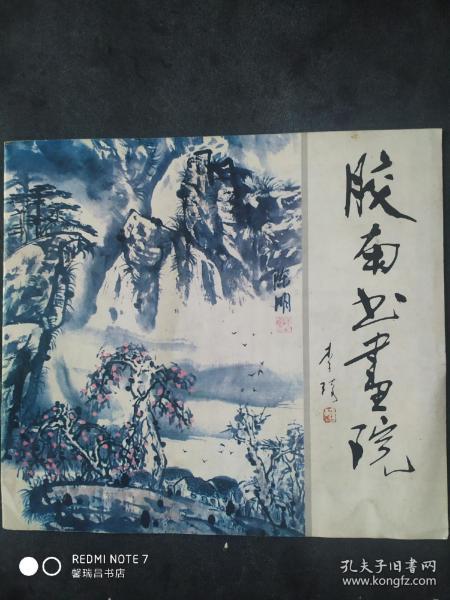 胶南书画院
李琦
陈明
REDMI NOTE 7
馨瑞昌书店
孔夫子旧书网
www.kongfz.com